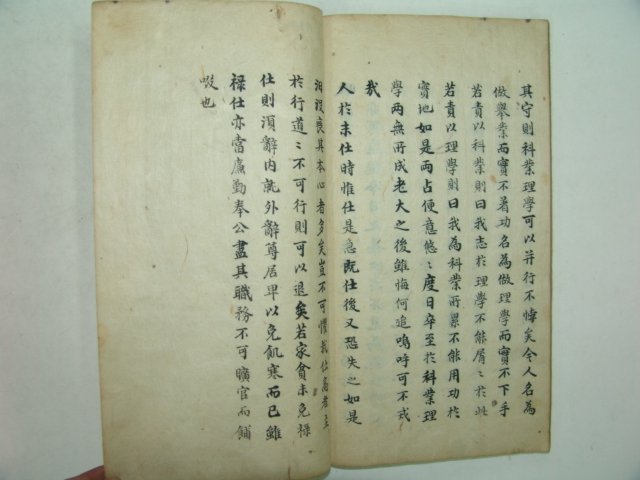 其守則科業理學可以并行不悖矣今人名為
做擧業而實不著功名為做理學而實不下手
若責以科業則曰我志於理學不能屑〻於此
若責以理學則曰我為科業所累不能用功於
實地如是兩占便意悠〻度日卒至於科業理
學兩無所成老大之後雖悔何追嗚呼可不戒
我
人於未仕時惟仕是急旣仕後又恐失之如是
汨沒喪其本心者多矣豈不可懼哉仕高者主
於行道〻不可行則可以退矣若家貧未免祿
仕則須辭內就外辭尊居卑以免飢寒而已雖
祿仕亦當廉勤奉公盡其職務不可曠官而餔
啜也